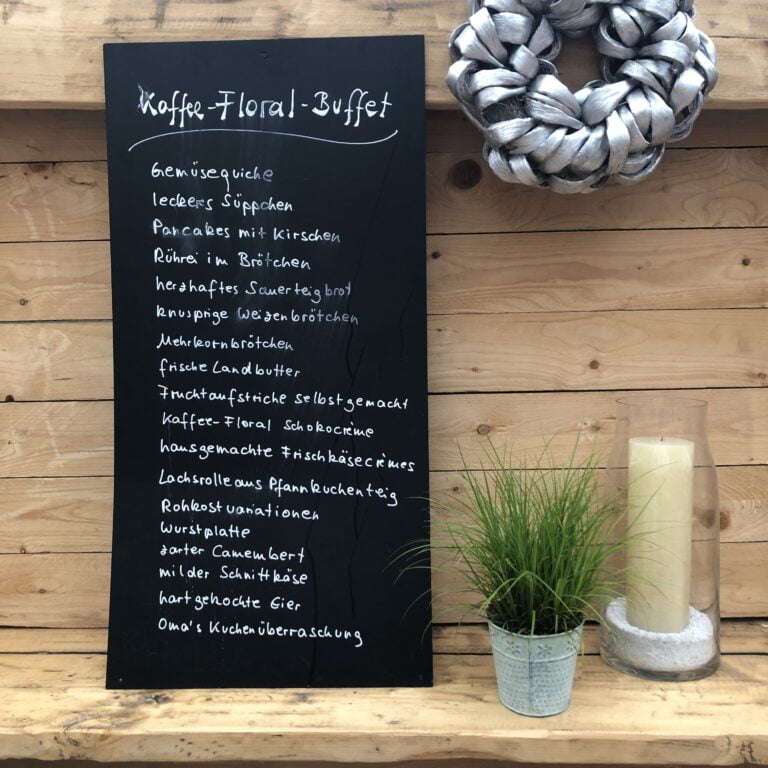 Kaffee-Floral-Buffet
Gemüsequiche
leckeres Süppchen
Pancakes mit Kirschen
Rührei im Brötchen
herzhaftes Sauerteigbrot
knusprige Weizenbrötchen
Mehrkornbrötchen
frische Landbutter
Fruchtaufstriche selbstgemacht
Kaffee-Floral Schokocrème
hausgemachte Frischkäsecrèmes
Lachsrolle aus Pfannkuchenteig
Rohkostvariationen
Wurstplatte
zarter Camembert
milder Schnittkäse
hartgekochte Eier
Oma's Kuchenüberraschung